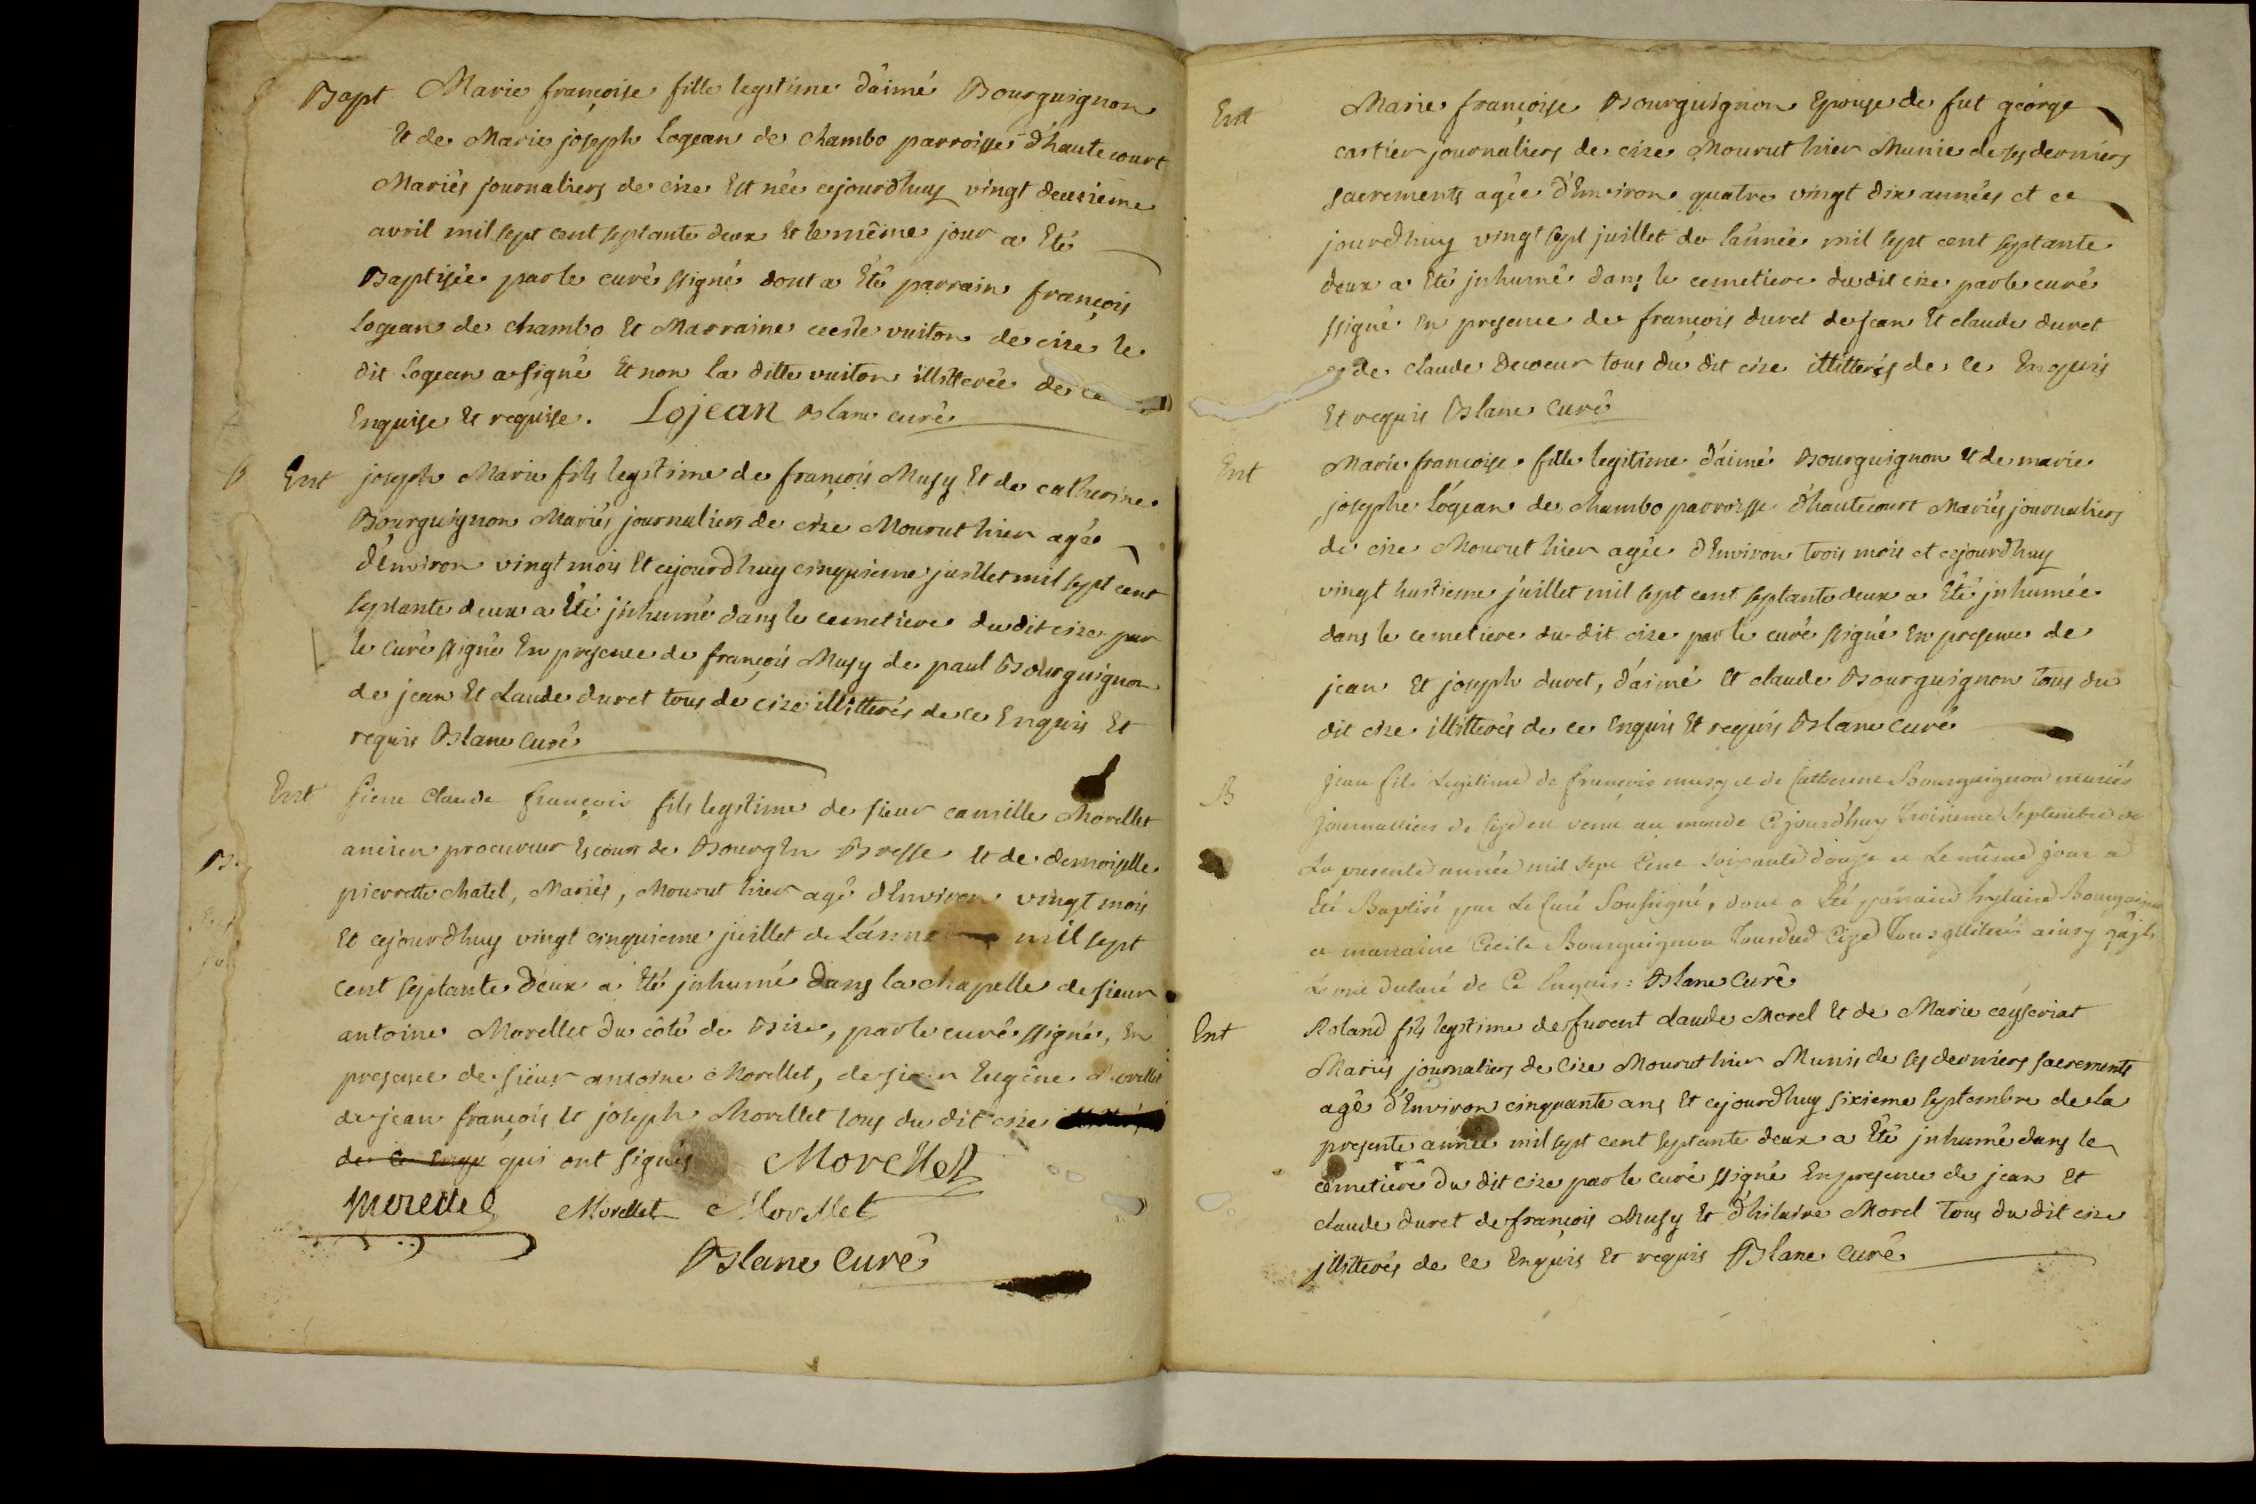 Bapt Marie françoise fille legitime d'aimé Bourguignon
Et de Marie joseph Logean de chambo parroisse d'hautecourt
Mariés journaliers de cize Est née cejourdhuy vingt deusieme
avril mil sept cent septante deux Et le même jour a Eté
Baptisée par le curé ssigné dont a Eté parrain françois
logean de chambo Et Marraine vuiton de cize le
dit logean a signé Et non la ditte vuiton illitterée de ce
Enquise Et requise. Lojean Blanc curé
Ent joseph Marie fils legitime de françois Musy Et de catherine
Bourguignon Mariés journaliers de cize Mourut hier agé
d'Environ vingt mois Et cejourdhuy cinquieme juillet mil sept cent
septante deux a Eté jnhumé dans le cemetiere du dit cize par
le curé ssigné En presence de françois Musy de paul Bourguignon
de jean Et claude duret tous de cize illitterés de ce Enquis Et
requis Blanc curé
Ent sieur claude françois fils legitime de sieur camille Morellet
ancien procureur Es cours de Bourg En Bresse Et de demoiselle
pierrette chatel, Mariés, Mourut hier agé d'Environ vingt mois
Et cejourdhuy vingt cinquieme juillet de L'anne mil sept
cent septante deux a Eté jnhumé dans la chapelle de sieur
antoine Morellet du côté de Bize, par le curé ssigné, En
presence de sieur antoine Morellet, de sieur Eugêne Morellet
de jean françois Et joseph Morellet tous du dit cize
de ce Enqu qui ont signés Morellet
Morellet Morellet Morellet
Blanc Curé
Ent Marie françoise Bourguignon Epouse de fut george
cartier journaliers de cize Mourut hier Munie de ses derniers
sacrements agée d'Environ quatre vingt dix années et ce
jourdhuy vingt sept juillet de l'année mil sept cent septante
deux a Eté jnhumé dans le cemetiere du dit cize par le curé
ssigné En presence de françois duret de jean Et claude duret
de claude Decoeur tous du dit cize illitterés de ce Enquis
Et requis Blanc curé
Ent Marie francoise fille legitime d'aimé Bourguignon Et de marie
josephe Logean de chambo parroisse d'hautecourt Mariés journaliers
de cize Mourut hier agée d'Environ trois mois et cejourdhuy
vingt huitieme juillet mil sept cent septante deux a Eté jnhumée
dans le cemetiere du dit cize par le curé ssigné En presence de
jean Et joseph duret, d'aimé Et claude Bourguignon tous du
dit cize illitterés de ce Enquis Et requis Blanc curé
B Jean fils Legitime de françois musy et de Catherine Bourguignon mariés
journalliers de Cize est venu au monde Cejourdhuy troisieme Septembre de
La presente année mil sept Cent soixante douze et Le même jour a
Eté Baptisé par Le Curé Soussigné, dont a Eté parrain hylaire Bourguignon
et marraine Cecile Bourguignon Tous dud Cize Tous jlliterés ainsy qu'jls
de Ce Enquis: Blanc Curé
Ent Roland fils legitime de furent claude Morel Et de Marie ceyseriat
Mariés journaliers de Cize Mourut hier Munis de ses derniers sacrements
agé d'Environ cinquante ans Et cejourdhuy sixieme septembre de la
presente année mil sept cent septante deux a Eté jnhumé dans le
cemetiere du dit cize par le curé ssigné En presence de jean Et
claude duret de françois Musy Et d'hilaire Morel tous du dit cize
jllitterés de ce Enquis Et requis Blanc Curé